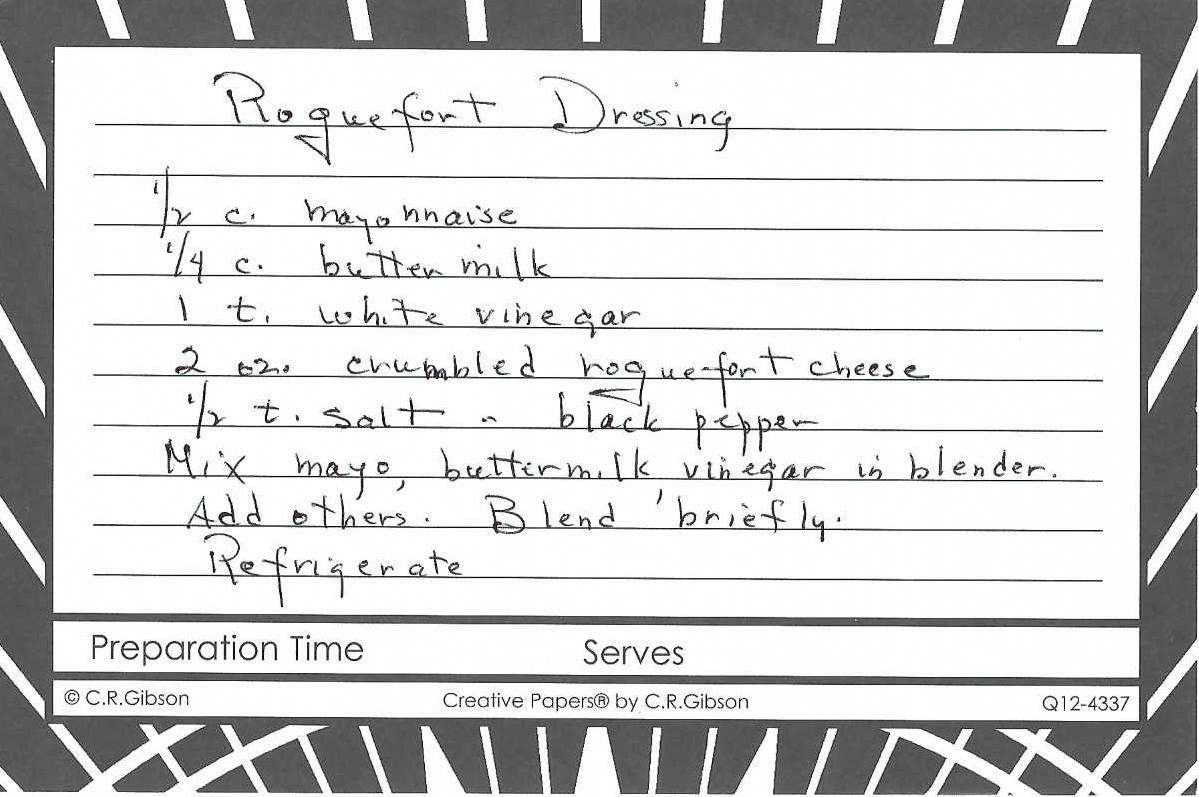 Roquefort Dressing
1/2 c. mayonnaise
1/4 c. buttermilk
1 t. white vinegar
2 oz. crumbled roquefort cheese
1/2 t. salt - black pepper
Mix mayo, buttermilk vinegar in blender.
Add others. Blend briefly.
Refrigerate
Preparation Time Serves
© C.R.Gibson Creative Papers® by C.R.Gibson Q12-4337